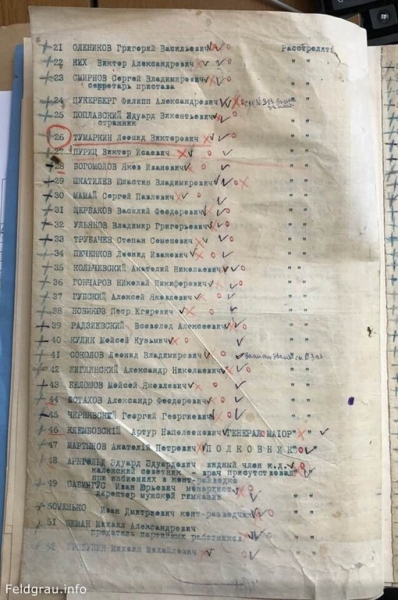 21 ОЛЕНИКОВ Григорий Васильевич Расстрелять
22 КИХ Виктор Александрович " "
23 СМИРНОВ Сергей Владимирович " "
секретарь пристава
24 ЦУКЕРБЕРГ Филипп Александрович " "
25 ПОПЛАВСКИЙ Эдуард Викентьевич " "
26 ТУМАРКИН Леонид Викторович " "
ПУРИЦ Виктор Исаевич " "
28 БОГОМОЛОВ Яков Иванович " "
29 Владимирович " "
30 МАМАЙ Сергей Павлович " "
31 ЩЕРБАКОВ Василий Федорович " "
32 УЛЬЯНОВ Владимир Григорьевич " "
33 ТРУБАЧЕВ Степан Семенович " "
34 ПЕЧЕНКОВ Леонид Иванович " "
35 КОЛЬЧЕВСКИЙ Анатолий Николаевич " "
36 ГОНЧАРОВ Николай Никифорович " "
37 ГУБСКИЙ Алексей Яковлевич " "
38 НОВИКОВ Петр Егорович " "
39 РАДЗИЕВСКИЙ Всеволод Алексеевич " "
40 КУЛИК Мойсей Кузьмич " "
41 СОКОЛОВ Леонид Владимирович
42 Александр Николаевич " "
43 БЕЛОУСОВ Мойсей " "
44 ОСТАХОВ Александр Федорович " "
45 ЧЕРНЯВСКИЙ Георгий Георгиевич " "
46 КЛЕМБОВСКИЙ Артур Наполеонович ГЕНЕРАЛ МАИОР " "
47 МАРТЫНОВ Анатолий Петрович ПОЛКОВНИК " "
48 АРНГОЛЬД Эдуард Эдуардович - видный член к.д.
советник - врач присутствовал
при избиениях в конт-разведке
49 Иван Юрьевич монархист
директор мужской гимназии
50 МЕНЬКО Иван Дмитриевич конт-разведчик " "
51 Михаил Александрович
предатель партийных работников " "
52 Михаил Михайлович " "
Feldgrau.info